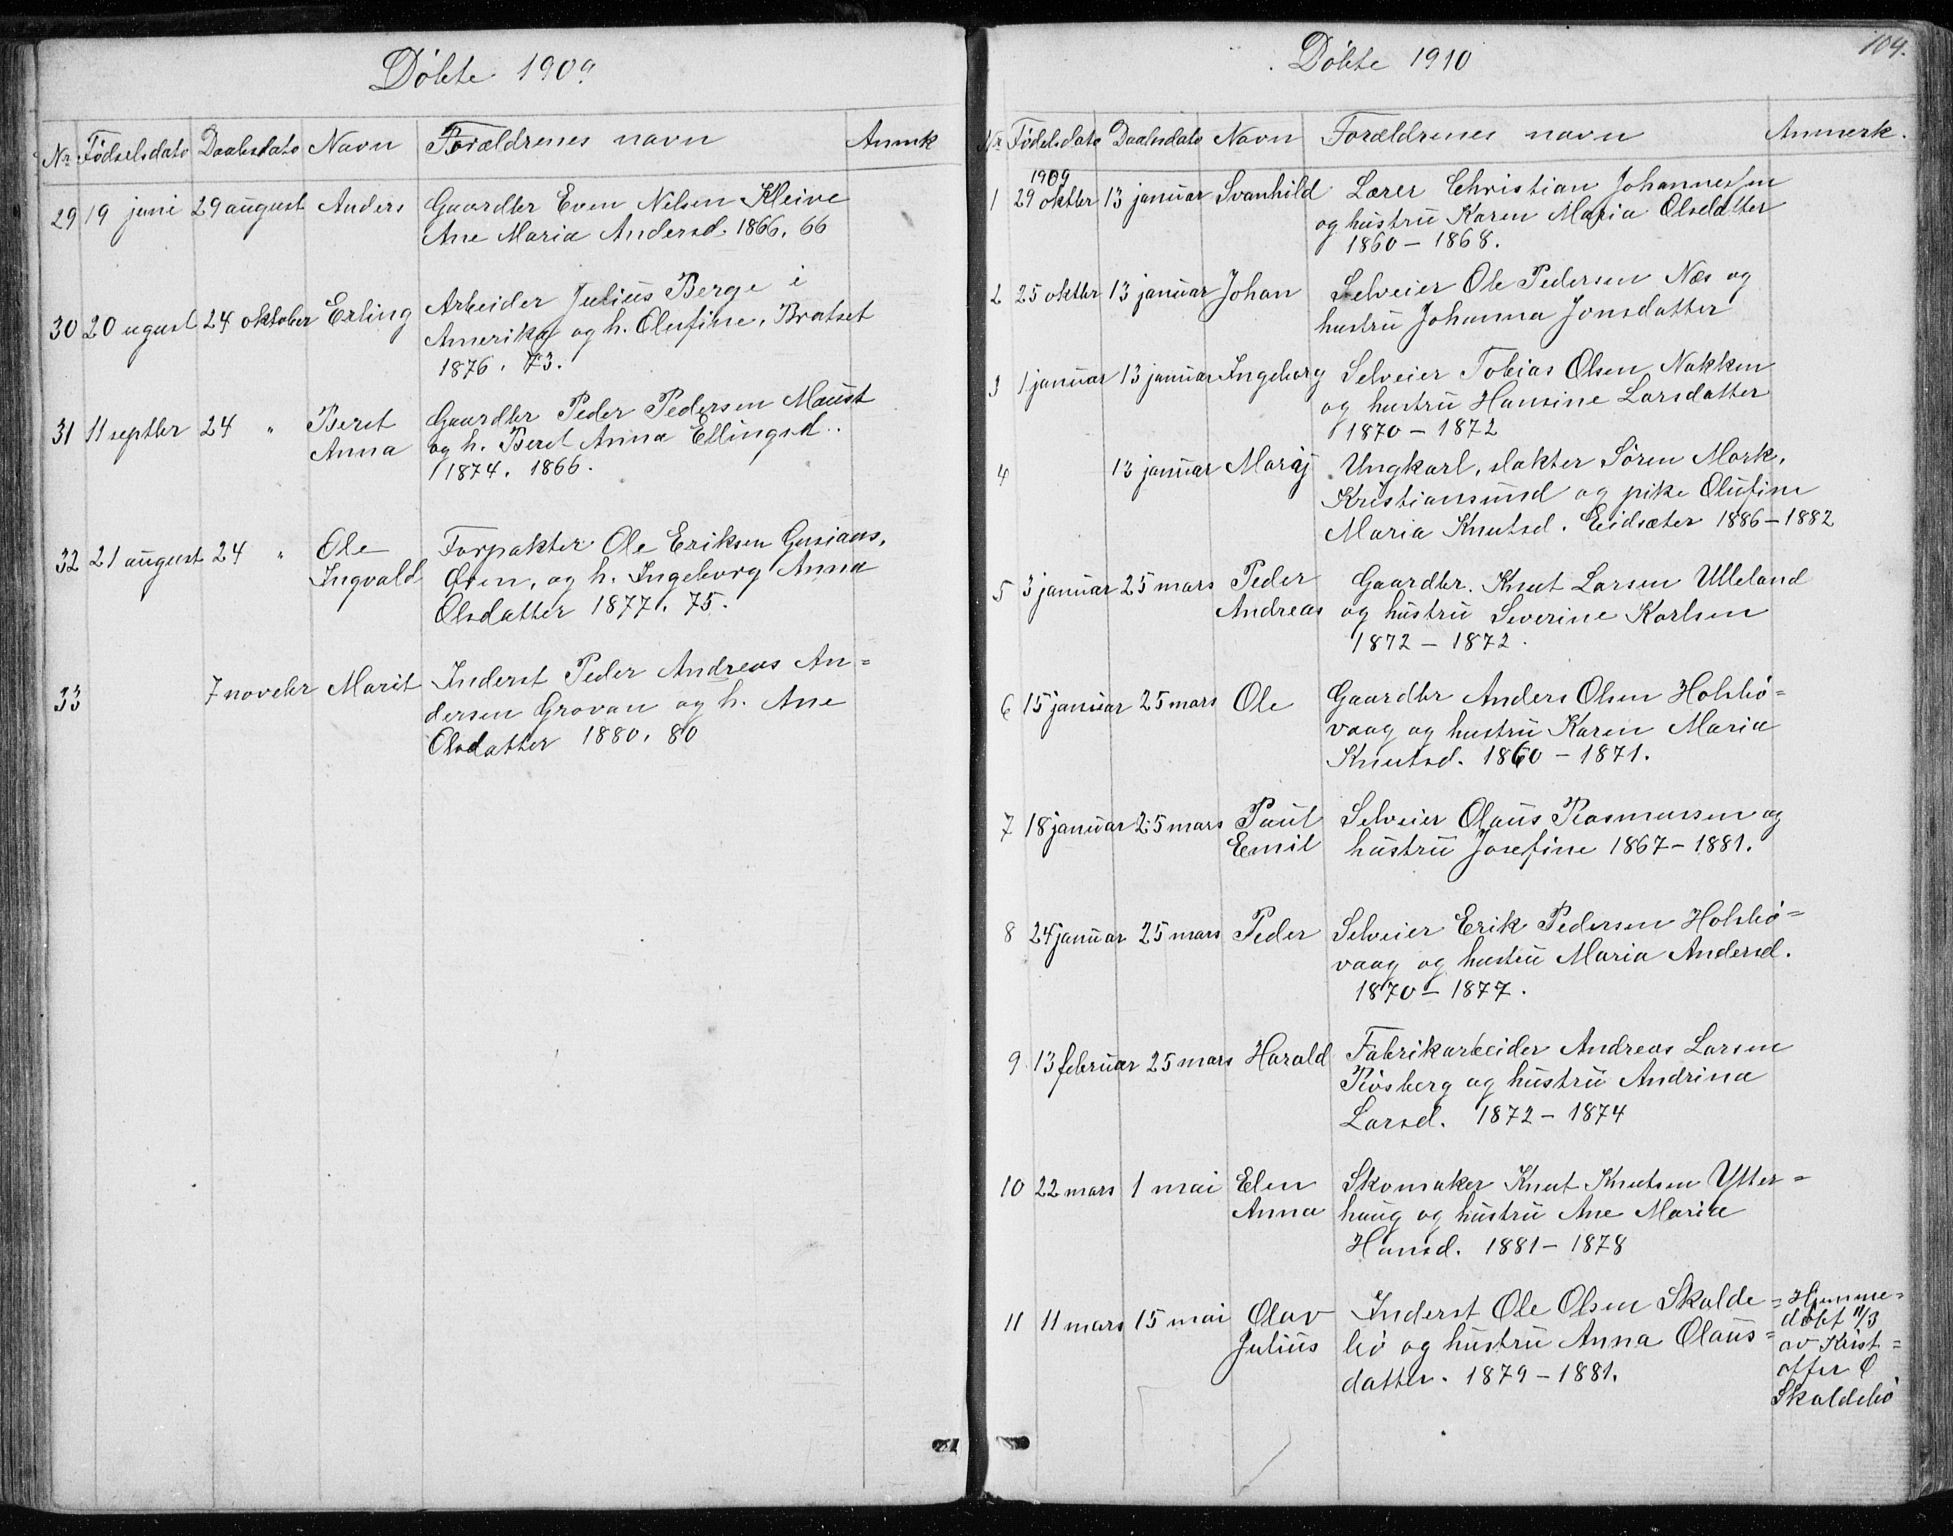 Döbte 1909
Nr Födselsdato Daabsdato Navn Forældrenes navn Anmk
29 19 juni 29 august Anders Gaardbr Even Nilsen Kleive
Ane Maria Andersd. 1866. 66
30 20 ugust 24 oktober Erling Arbeider Julius Berge i
Amerika og h. Olufine. Bratset
1876. 73.
31 11 septbr 24 " Beret Gaardbr Peder Pedersen Maust
Anna og h. Beret Anna Ellingsd..
1874. 1866.
32 21 august 24 " Ole Forpakter Ole Eriksen Gusians,
Ingvald Øien, og h. Ingeborg Anna
Olsdatter 1877. 75.
33 7 novebr Marit Inderst Peder Andreas An=
dersen Grovan og h. Ane
Olsdatter 1880. 80
104.
Döbte 1910
Nr Födelsdato Daabsdato Navn Forældrenes navn Anmerk.
1909
1 29 oktbr 13 januar Svanhild Lærer Christian Johannessen
og hustru Karen Maria Olsdatter
1860 - 1868.
2 25 oktbr 13 januar Johan Selveier Ole Pedersen Næs og
hustru Johanna Jonsdatter
3 1 januar 13 januar Ingeborg Selveier Tobias Olsen Nakken
og hustru Hansine Larsdatter
1870 - 1872
4 13 januar Maraj Ungkarl, slakter Søren Mork,
Kristiansund og pike Olufine
Maria Knutsd. Eidsæter 1886 - 1882
5 3 januar 25 mars Peder Gaardbr. Knut Larsen Ulleland
Andreas og hustru Severine Karlsen
1872 - 1872.
6 15 januar 25 mars Ole Gaardbr Anders Olsen Holsbö=
vaag og hustru Karen Maria
Knutsd. 1860 - 1871.
7 18 januar 25 mars Paul Selveier Olaus Rasmussen og
Emil hustru Josefine 1867 - 1881.
8 24 januar 25 mars Peder Selveier Erik Pedersen Holsbö=
vaag og hustru Maria Andersd.
1870 - 1877.
9 13 februar 25 mars Harald Fabrikarbeider Andreas Larsen
Rösberg og hustru Andrina
Larsd. 1872 - 1874
10 22 mars 1 mai Elen Skomaker Knut Knutsen Ytter=
Anna haug og hustru Ane Maria
Hansd. 1881 - 1878
11 11 mars 15 mai Olav Inderst Ole Olsen Skalde= Hjemme=
döbt 11/3
Julius bö og hustru Anna Olaus= av Krist=
datter. 1879 - 1881. offer O
Skaldebö